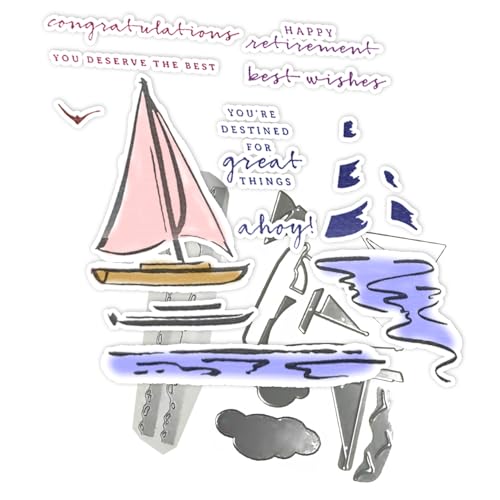 congratulations
YOU DESERVE THE BEST
HAPPY
retirement
best wishes
YOU'RE
DESTINED
FOR
great
THINGS
ahoy!